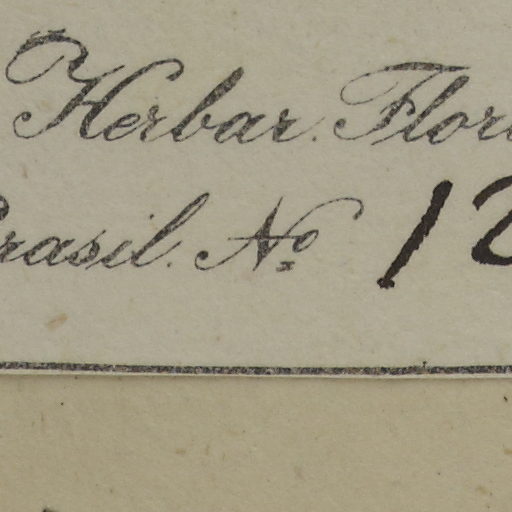 Herbar. Flor
rasil. No 12